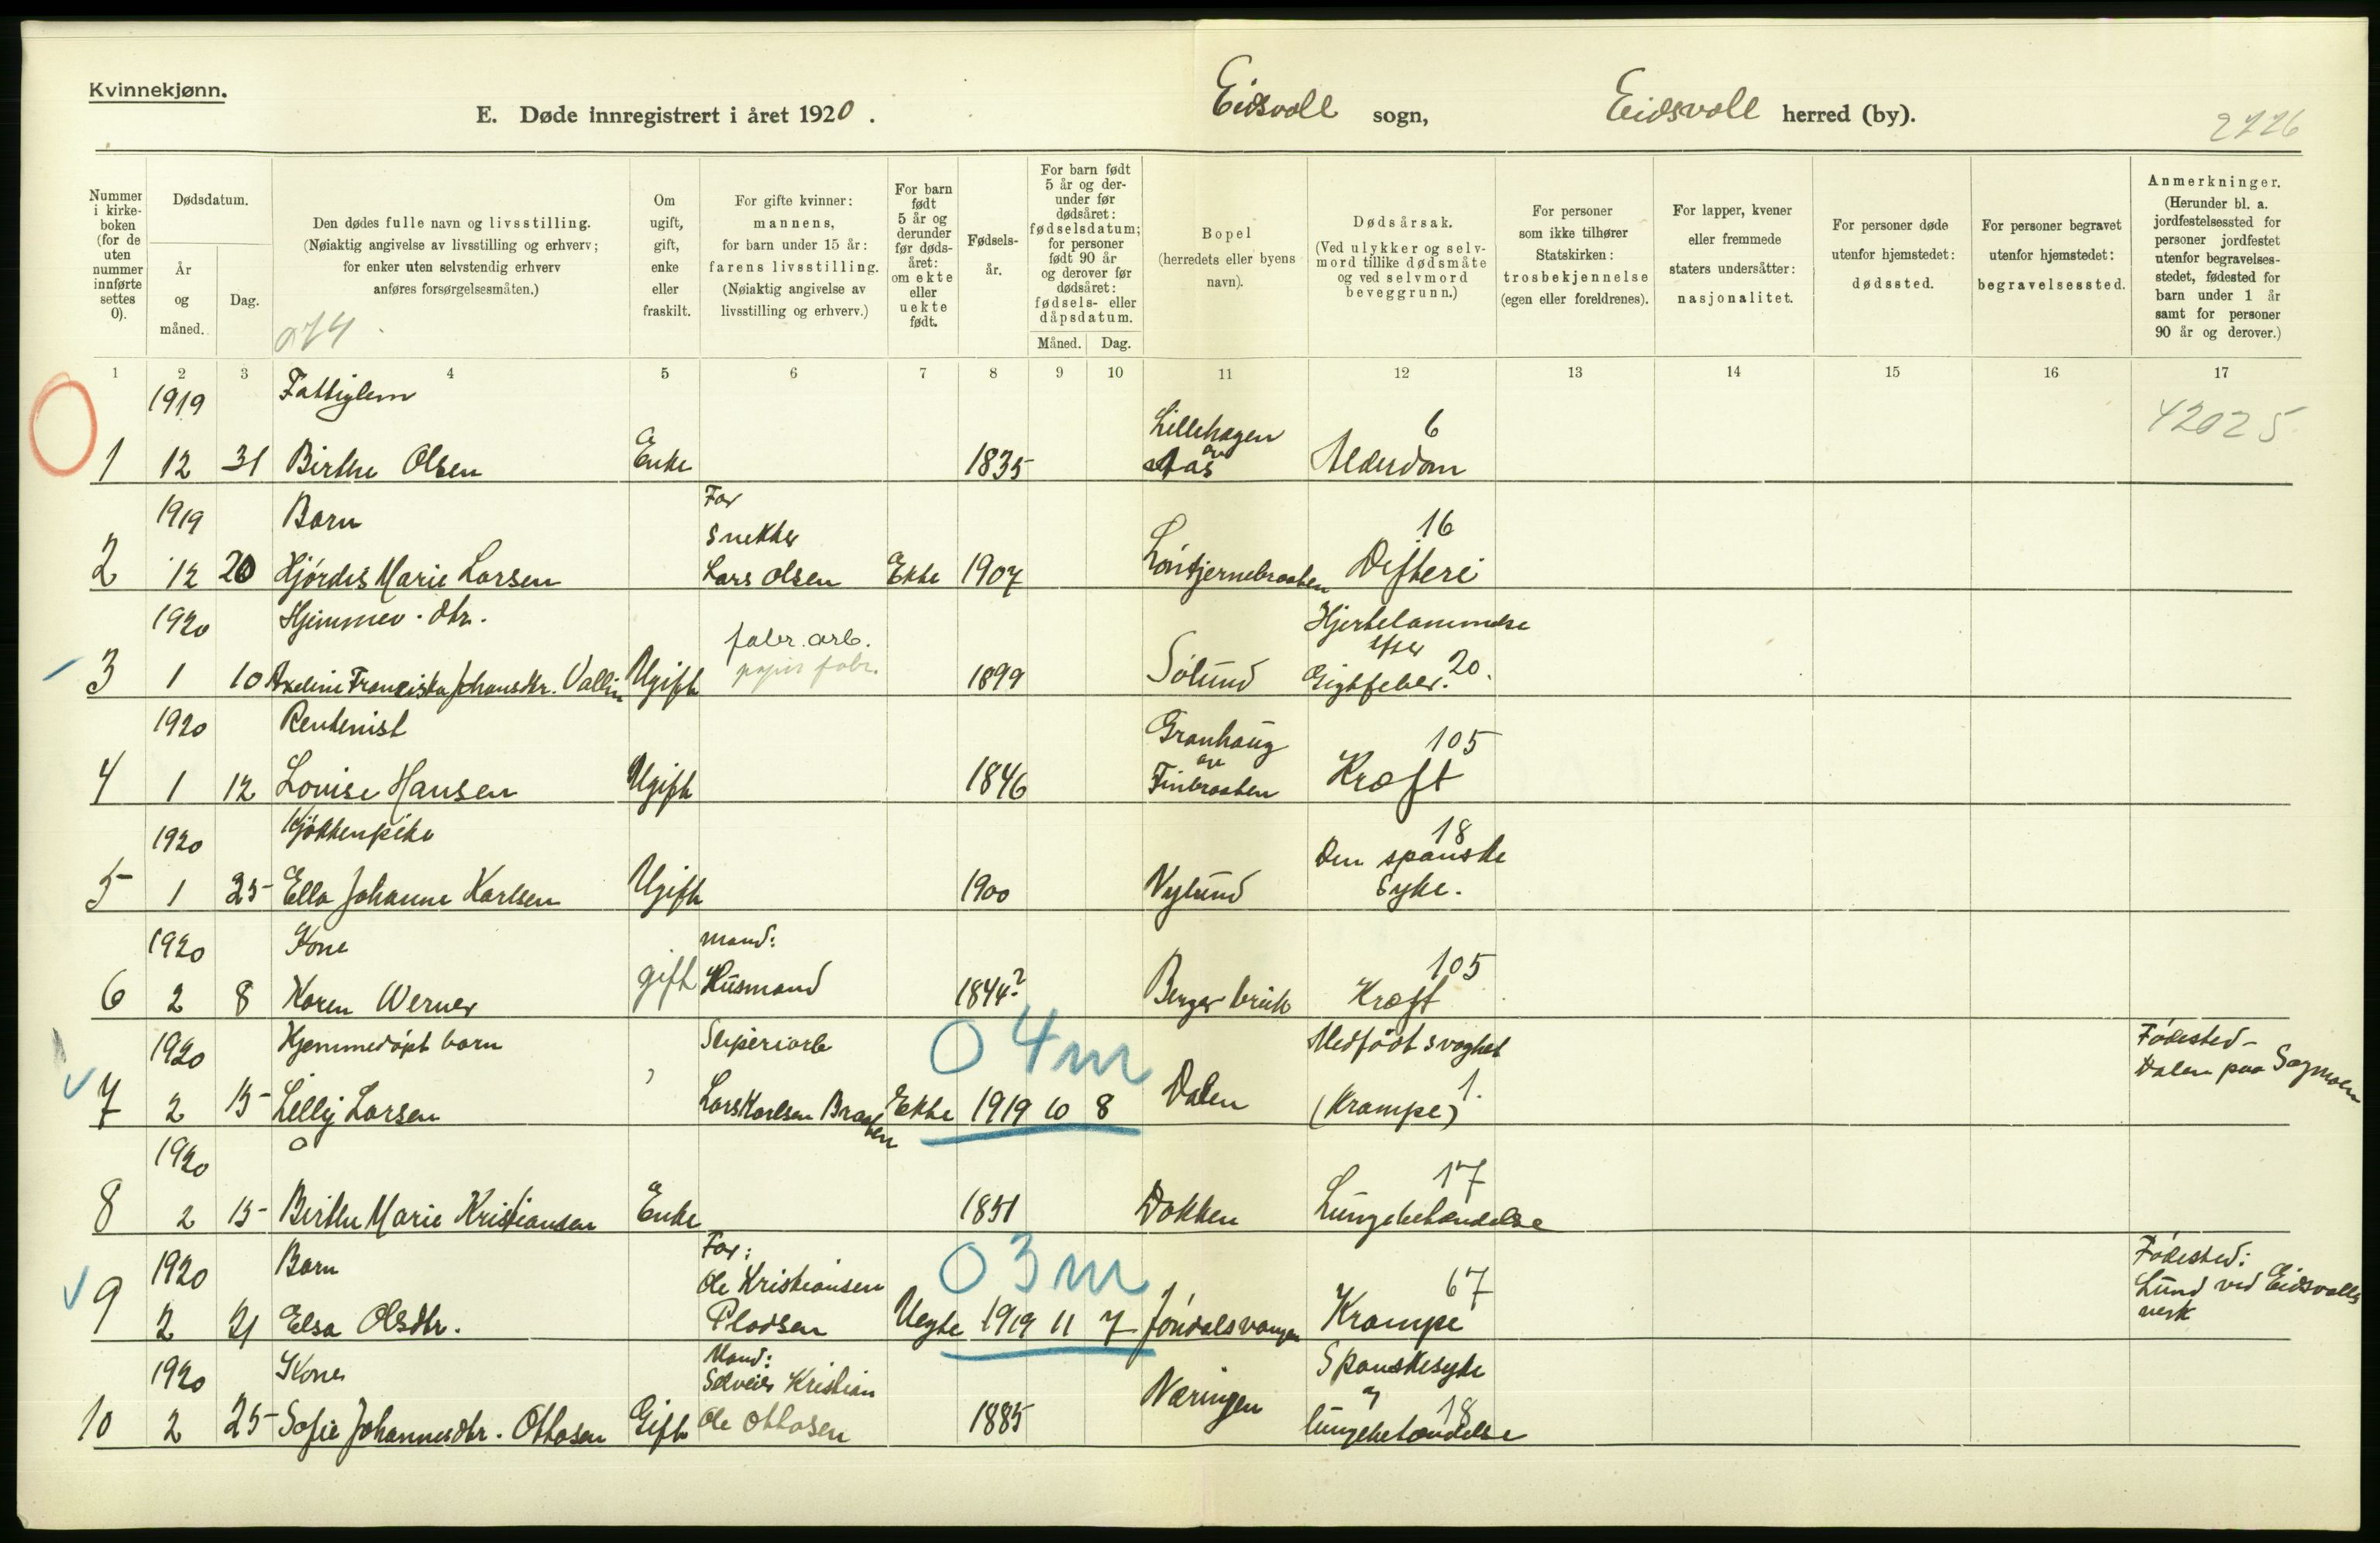 Kvinnekjønn.
E. Døde innregistrert i året 1920. Eidsvoll sogn, Eidsvoll herred (by).
Nummer i kirkeboken (for de uten nummer innførte settes 0).
Dødsdatum.
År og måned.
Dag.
Den dødes fulle navn og livsstilling.
(Nøiaktig angivelse av livsstilling og erhverv;
for enker uten selvstendig erhverv
anføres forsørgelsesmåten.)
Om ugift, gift, enke eller fraskilt.
For gifte kvinner:
mannens,
for barn under 15 år:
farens livsstilling.
(Nøiaktig angivelse av
livsstilling og erhverv.)
For barn født 5 år og derunder før dødsåret: om ekte eller uekte født.
Fødselsår.
For barn født 5 år og derunder før dødsåret: fødselsdatum; for personer født 90 år og derover før dødsåret: fødsels- eller dåpsdatum.
Måned. Dag.
Bopel
(herredets eller byens
navn).
Dødsårsak.
(Ved ulykker og selvmord tillike dødsmåte og ved selvmord beveggrunn.)
For personer
som ikke tilhører
Statskirken:
trosbekjennelse
(egen eller foreldrenes).
For lapper, kvener
eller fremmede
staters undersåtter:
nasjonalitet.
For personer døde
utenfor hjemstedet:
dødssted.
For personer begravet
utenfor hjemstedet:
begravelsessted.
Anmerkninger.
(Herunder bl. a.
jordfestelsessted for
personer jordfestet
utenfor begravelses-
stedet, fødested for
barn under 1 år
samt for personer
90 år og derover.)
1 2 3 4 5 6 7 8 9 10 11 12 13 14 15 16 17
1919 Fattiglem Lillehagen 6 42025
1 12 31 Birthe Olsen Enke 1835 Aas Alderdom
1919 Barn Far Snekker 16
2 12 20 Hjørdis Marie Larsen Lars Olsen Ekte 1907 Defteri
1920 Hjemmev. dtr. fabr. arb. Hjertelammelse efter
3 1 10 Axeline Franziska Johansdtr. Vallin Ugift papirfabr. 1899 Solund Gigtfeber. 20.
1920 Rentenist Granhaug 105
4 1 12 Lovise Hansen Ugift 1846 Finbraaten Kræft
1920 Kjøkkenpike 18 Den spanske
5 1 25 Ella Johanne Karlsen Ugift 1900 Nylund Syke.
1920 Kone mand: 105
6 2 8 Karen Werner gift Husmand 1844? Berger bruk Kræft
1920 Hjemmedøpt barn Sliperiarb 0 4 m Medfødt svaghet Fødested-
7 2 15 Lilly Larsen Lars Karlsen Braaten Ekte 1919 10 8 Dalen (Krampe) 1. Dalen paa Sagmoen
1920 0 17
8 2 15 Birthe Marie Kristiansen Enke 1851 Dokken Lungebetændelse
1920 Barn Far: Ole Kristiansen 0 3 m 67 Fødested: Lund ved Eidsvolls
9 2 21 Elsa Olsdtr. Pladsen Uegte 1919 11 7 Jøndalsvangen Krampe verk
1920 Kone Mand: Selveier Kristian Spanskesyke
10 2 25 Sofie Johannesdtr. Ottosen Gift Ole Ottosen 1885 Næringen 18 lungebetændelse